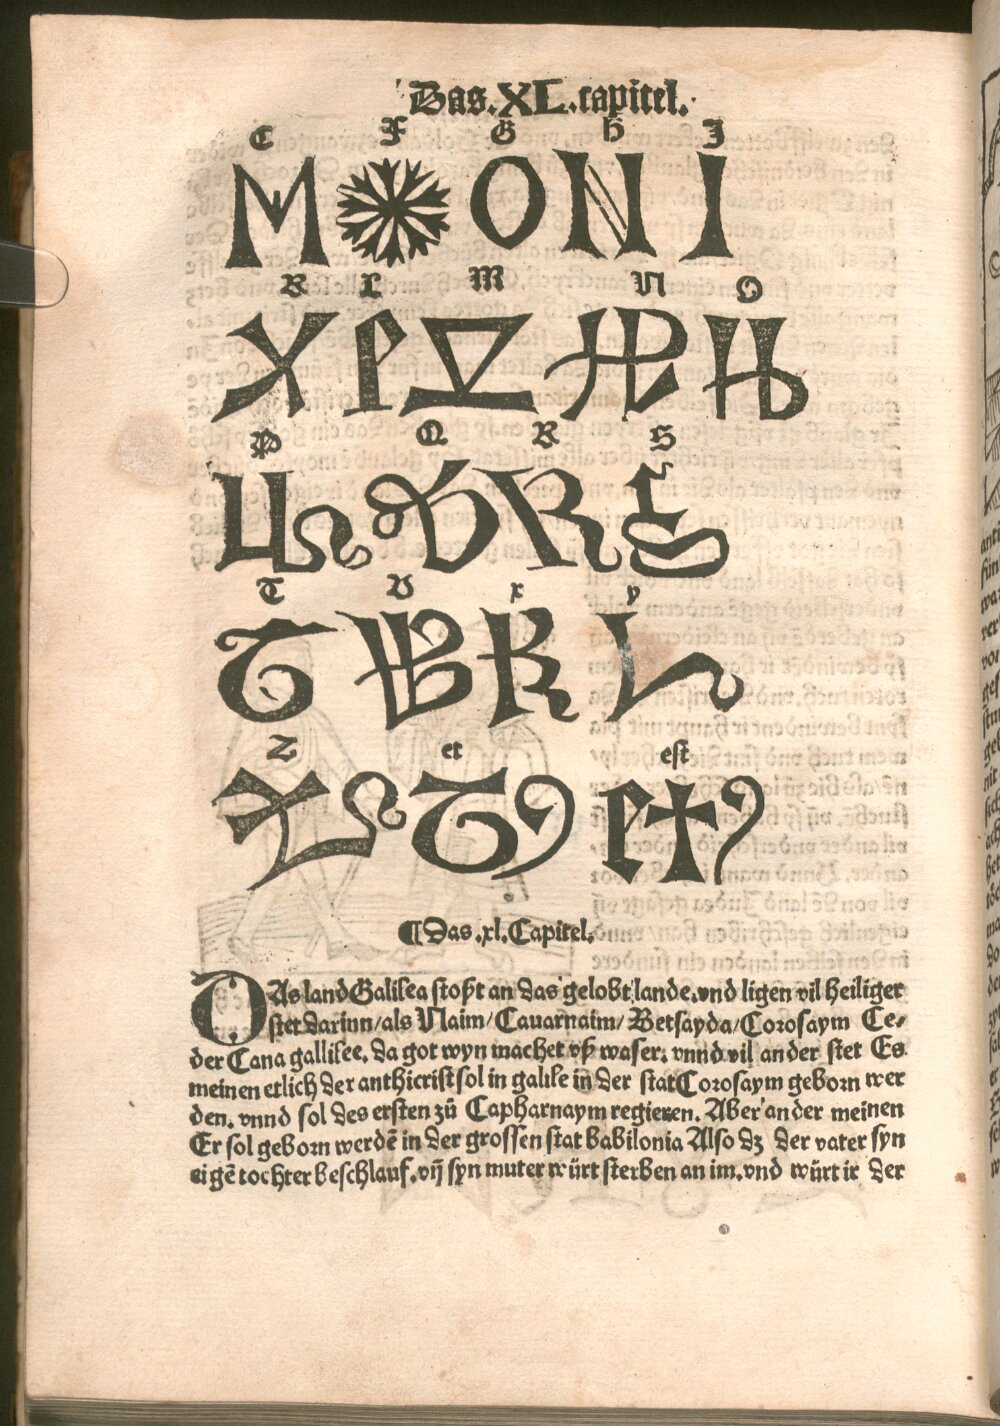 Das.XL.capitel.
E F G H I
K L M N O
P Q R S
T V x y
Z et est
¶Das.xl.Capitel.
DAs land Galilea stoßt an das gelobt lande.vnd ligen vil heiliger
stet darinn/als Naim/Cauarnaim/Betsayda/Corosaym Ce⸗
der Cana gallilee. da got wyn machet vß waser. vnnd vil an der stet Es
meinen etlich der anthicrist sol in galile in der stat Corosaym geborn wer
den. vnnd sol des ersten zů Capharnaym regieren. Aber ander meinen
Er sol geborn werdē in der grossen stat babilonia Also dz der vater syn
eigē tochter beschlauf.vn̄ syn muter würt sterben an im.vnd würt ir der